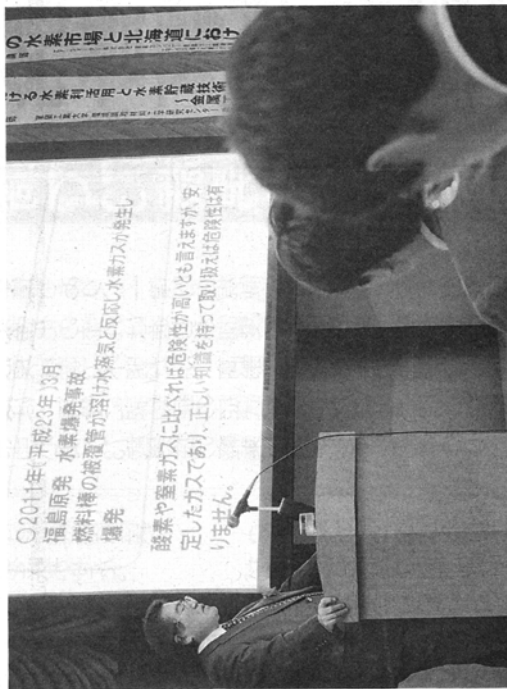 の水素市場と北海道におけ
ける水素利活用と水素貯蔵技術
～金属
○2011年(平成23年)3月
福島原発 水素爆発事故
燃料棒の被覆管が溶け水蒸気と反応し水素ガスが発生し
爆発
酸素や窒素ガスに比べれば危険性が高いとも言えますが、安
定したガスであり、正しい知識を持って取り扱えば危険性は有
りません。